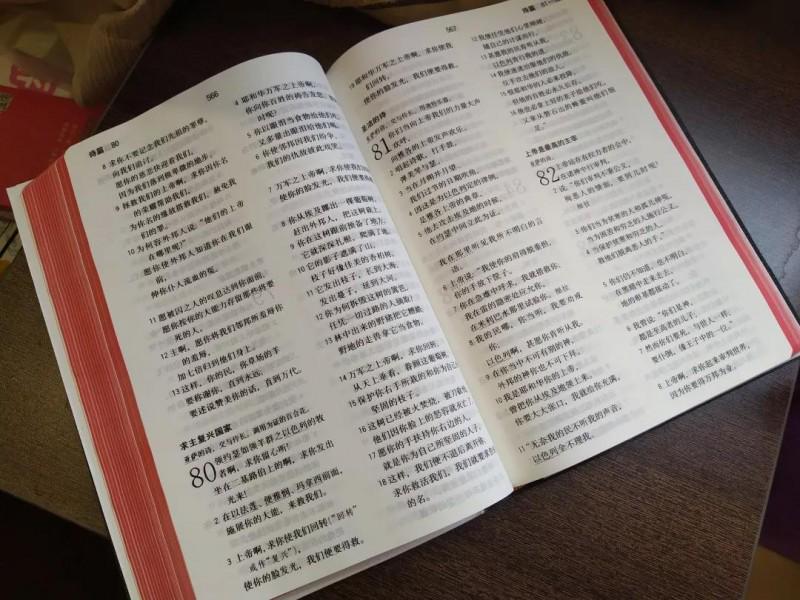 566
诗篇 80
8 求你不要记念我们先祖的罪孽，
向我们追讨。
愿你的慈悲快迎着我们，
因为我们落到极卑微的地步。
9 拯救我们的上帝啊，求你因你名
的荣耀帮助我们，
为你名的缘故搭救我们，赦免我
们的罪。
10 为何容外邦人说：“他们的上帝
在哪里呢？”
愿你使外邦人知道你在我们眼
前，
伸你仆人流血的冤。
11 愿被囚之人的叹息达到你面前，
愿你按你的大能力存留那些将要
死的人。
12 主啊，愿你将我们邻邦所羞辱你
的羞辱，
加七倍归到他们身上。
13 这样，你的民，你草场的羊
要称谢你，直到永远；
要述说赞美你的话，直到万代。
求主复兴国家
亚萨的诗，交与伶长，调用为证的百合花。
80 领约瑟如领羊群之以色列的牧
者啊，求你留心听！
坐在二基路伯上的啊，求你发出
光来！
2 在以法莲、便雅悯、玛拿西前面，
施展你的大能，来救我们。
3 上帝啊，求你使我们回转（“回转”
或作“复兴”），
使你的脸发光，我们便要得救。
4 耶和华万军之上帝啊，
你向你百姓的祷告发怒，
时呢？
5 你以眼泪当食物给他们吃，
又多量出眼泪给他们喝。
6 你使邻邦因我们纷争，
我们的仇敌彼此戏笑。
7 万军之上帝啊，求你使我们
使你的脸发光，我们便要
8 你从埃及挪出一棵葡萄树，
赶出外邦人，把这树栽上。
9 你在这树跟前预备了地方，
它就深深扎根，爬满了地。
10 它的影子遮满了山，
枝子好像佳美的香柏树。
11 它发出枝子，长到大海，
发出蔓子，延到大河。
12 你为何拆毁这树的篱笆，
任凭一切过路的人摘取？
13 林中出来的野猪把它糟踏，
野地的走兽拿它当食物。
14 万军之上帝啊，求你回转，
从天上垂看，眷顾这葡萄树，
15 保护你右手所栽的和你为自己
坚固的枝子。
16 这树已经被火焚烧，被刀砍
他们因你脸上的怒容就灭亡了
17 愿你的手扶持你右边的人，
就是你为自己所坚固的人子。
18 这样，我们便不退后离开你，
求你救活我们，我们就要求告
的名。
567
诗篇 81
19 耶和华万军之上帝啊，求你使我
们回转，
使你的脸发光，我们便要得救。
圣洁的诗
亚萨的诗，交与伶长，用迦特乐器。
81 你们当向上帝我们的力量大声
欢呼，
向雅各的上帝发声欢乐。
2 唱起诗歌，打手鼓，
弹美琴与瑟。
3 当在月朔并月望，
我们过节的日期吹角，
4 因这是为以色列定的律例，
是雅各上帝的典章。
5 他去攻击埃及地的时候，
在约瑟中间立此为证。
我在那里听见我所不明白的言
语。
6 上帝说：“我使你的肩得脱重担，
你的手放下筐子。
7 你在急难中呼求，我就搭救你，
我在雷的隐密处应允你，
在米利巴水那里试验你。细拉
8 我的民哪，你当听，我要劝戒
你；
以色列啊，甚愿你肯听从我。
9 在你当中不可有别的神，
外邦的神你也不可下拜。
10 我是耶和华你的上帝，
曾把你从埃及地领上来，
你要大大张口，我就给你充满。
11 “无奈我的民不听我的声音，
以色列全不理我。
12 我便任凭他们心里刚硬，
随自己的计谋而行。
13 甚愿我的民肯听从我，
以色列肯行我的道，
14 我便速速治服他们的仇敌，
反手攻击他们的敌人。
15 恨耶和华的人必来投降，
但他的百姓必永久长存。
16 他也必拿上好的麦子给他们吃，
又拿从磐石出的蜂蜜叫他们饱
足。
上帝是最高的主宰
亚萨的诗。
82 上帝站在有权力者的会中，
在诸神中行审判，
2 说：“你们审判不秉公义，
徇恶人的情面，要到几时呢？
细拉
3 你们当为贫寒的人和孤儿伸冤，
当为困苦和穷乏的人施行公义。
4 当保护贫寒和穷乏的人，
救他们脱离恶人的手。”
5 你们仍不知道，也不明白，
在黑暗中走来走去，
地的根基都摇动了。
6 我曾说：“你们是神，
都是至高者的儿子；
7 然而你们要死，与世人一样，
要仆倒，像王子中的一位。”
8 上帝啊，求你起来审判世界，
因为你要得万邦为业。